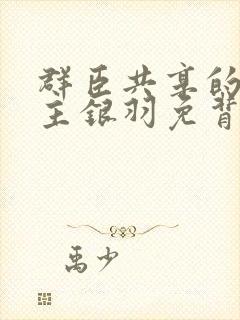 群臣共享的
主银羽免背
禹少